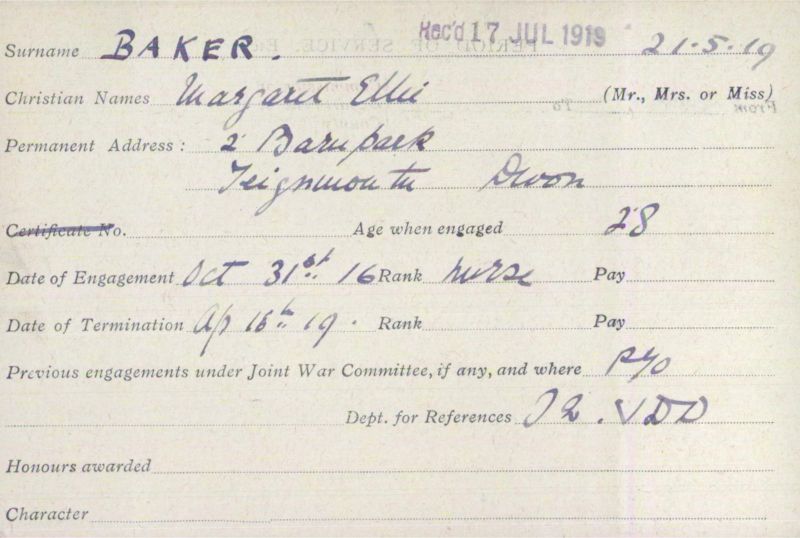 Rec'd 17 JUL 1919
Surname BAKER. 21-5-19
Christian Names Margaret Ellie (Mr., Mrs. or Miss)
Permanent Address: 2 Barnpark
Teignmouth Devon
Certificate No. Age when engaged 28
Date of Engagement Oct 31st 16 Rank nurse Pay
Date of Termination Ap 16th 19. Rank Pay
Previous engagements under Joint War Committee, if any, and where
Dept. for References VDD
Honours awarded
Character